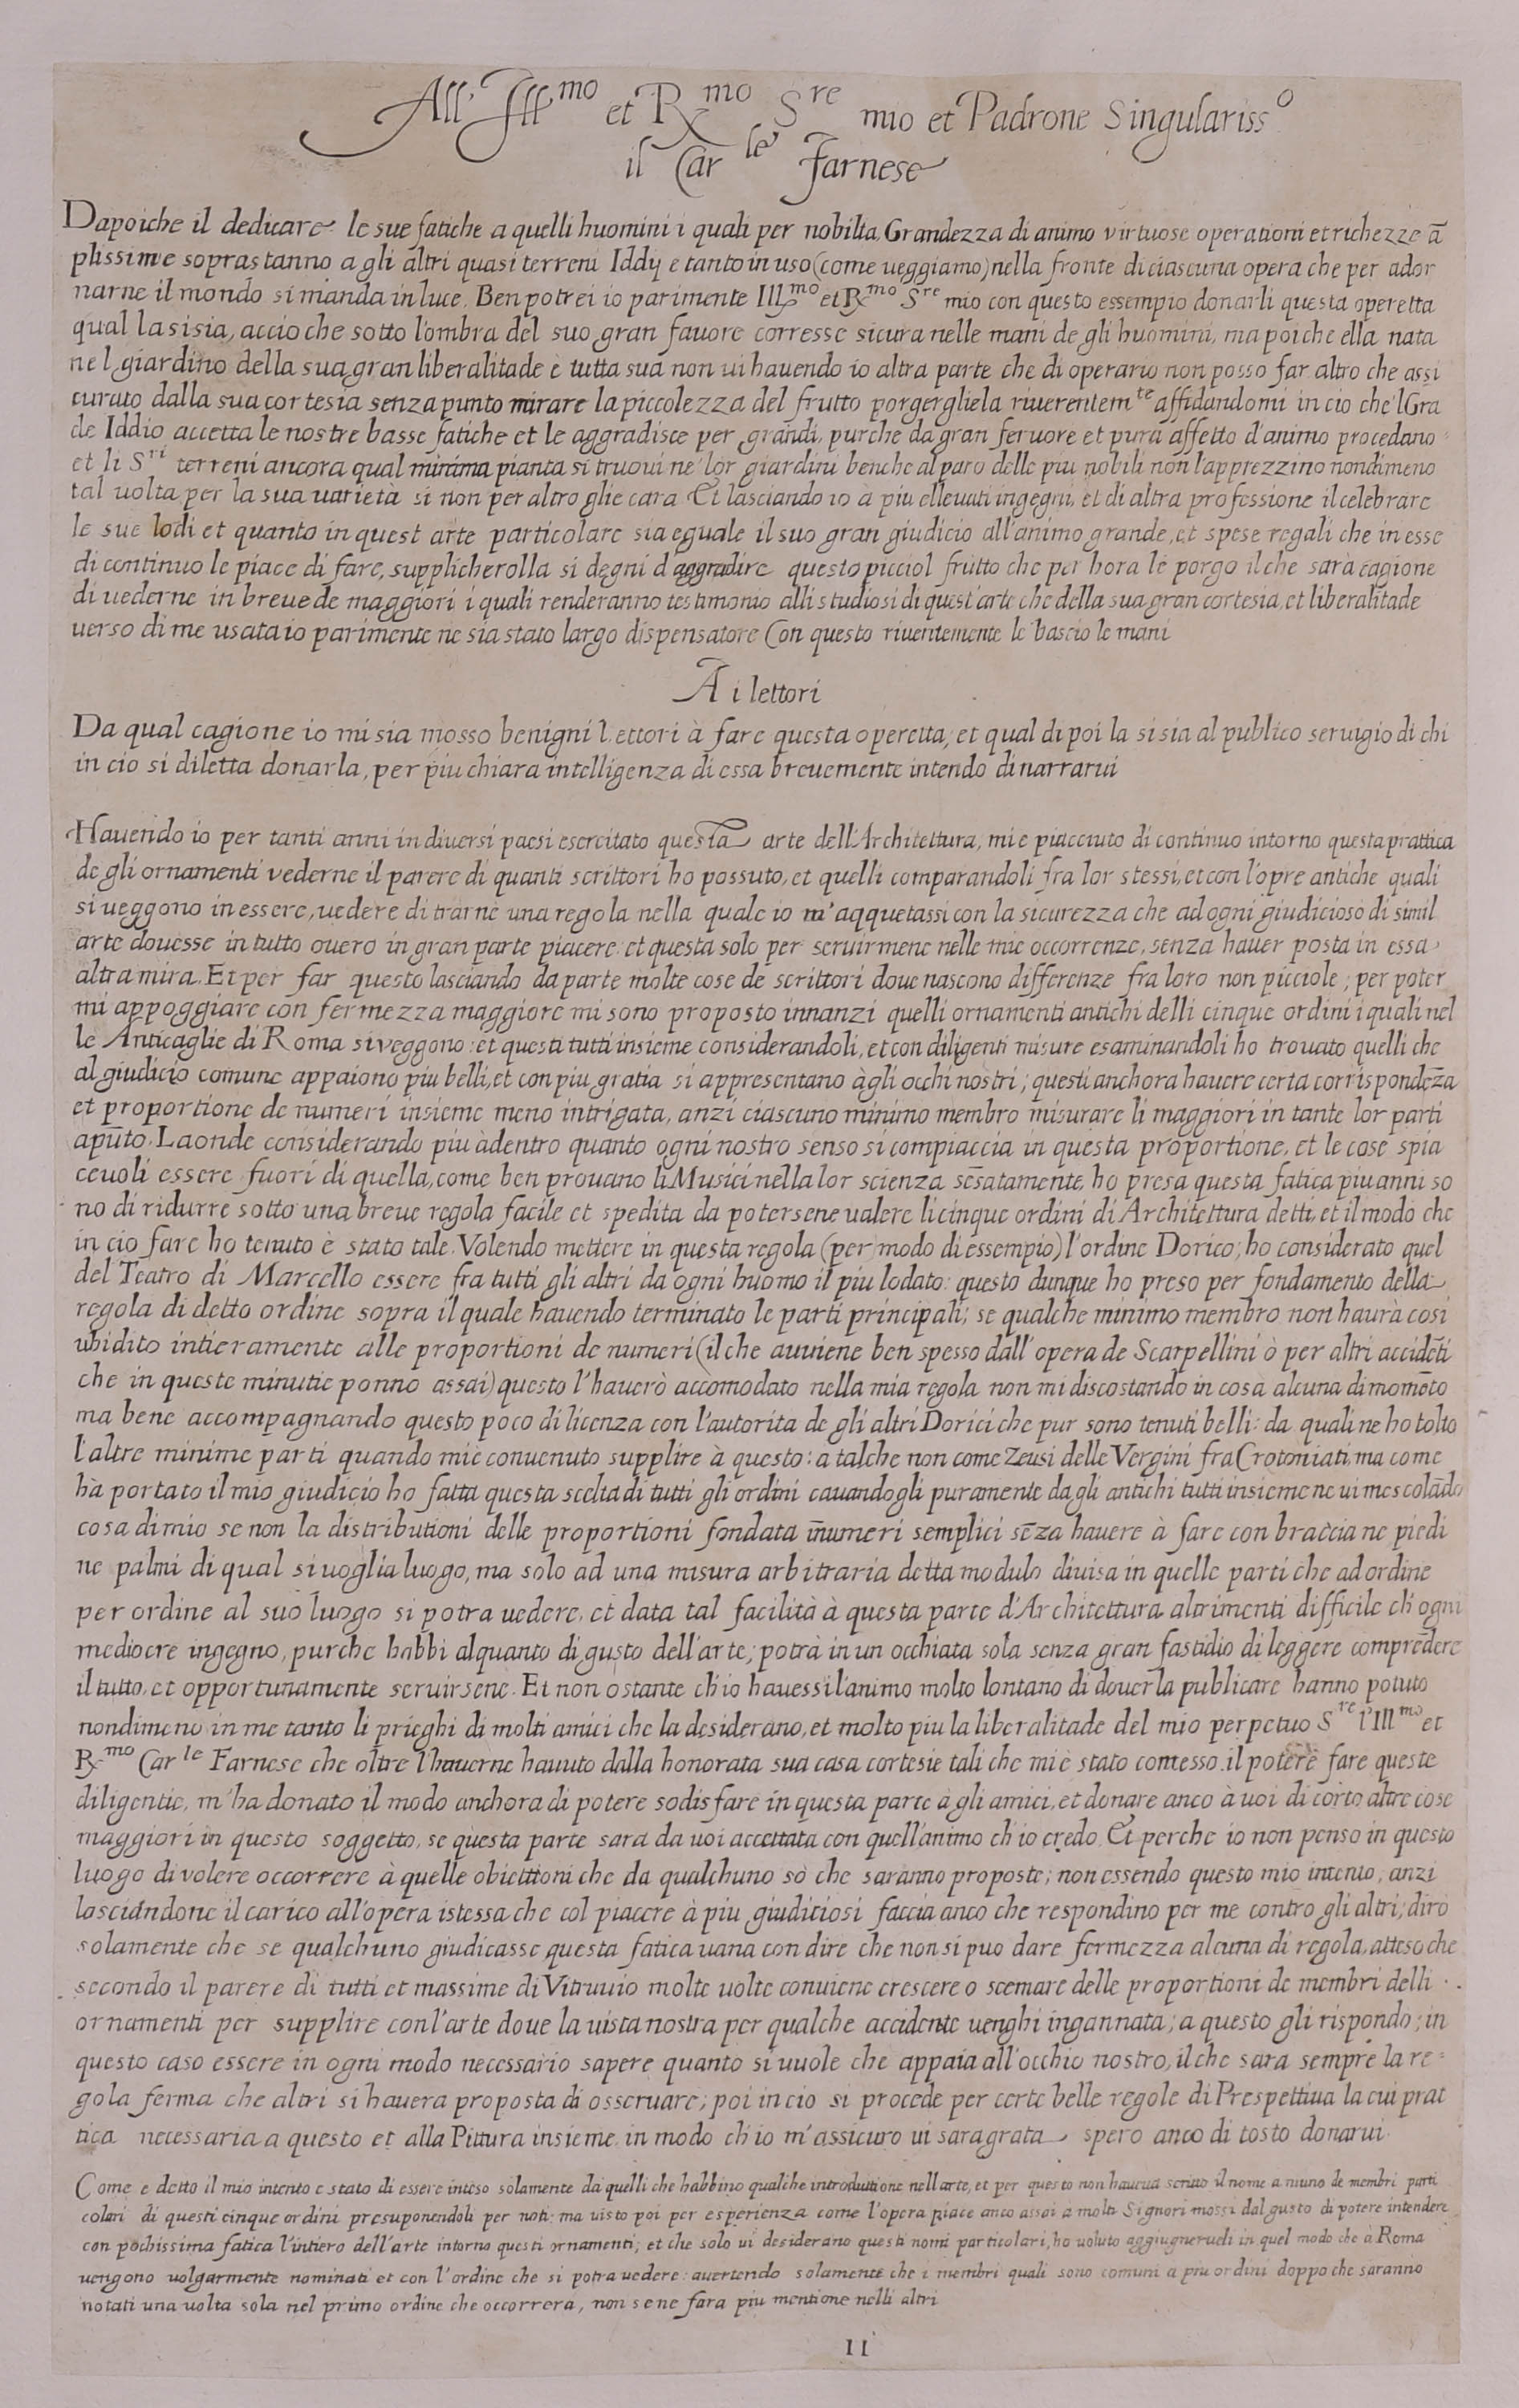 All' Ill^mo et R^mo S^re mio et Padrone Singulariss^o
il Car^le Farnese
Dapoiche il dedicare le sue fatiche a quelli huomini i quali per nobilta, Grandezza di animo virtuose operationi et richezze ā
plissime soprastanno a gli altri quasi terreni Iddij e tanto in uso (come ueggiamo) nella fronte di ciascuna opera che per ador
narne il mondo si manda in luce. Ben potrei io parimente Ill^mo et R^mo S^re mio con questo essempio donarli questa operetta
qual la si sia, accio che sotto l'ombra del suo gran fauore corresse sicura nelle mani de gli huomini, ma poiche ella nata
nel giardino della sua gran liberalitade è tutta sua non ui hauendo io altra parte che di operario non posso far altro che assi
curato dalla sua cortesia senza punto mirare la piccolezza del frutto porgergliela riuerentem^te affidandomi in cio che'l Gra
de Iddio accetta le nostre basse fatiche et le aggradisce per grandi, purche da gran feruore et pura affetto d'animo procedano
et li S^ri terreni ancora qual minima pianta si truoui ne' lor giardini benche al paro delle piu nobili non l'apprezzino nondimeno
tal uolta per la sua uarieta si non per altro glie cara Et lasciando io à piu elleuati ingegni, et di altra professione il celebrare
le sue lodi et quanto in quest arte particolare sia eguale il suo gran giudicio all'animo grande, et spese regali che in esse
di continuo le piace di fare, supplicherolla si degni d'aggradire questo picciol frutto che per hora le porgo il che sarà cagione
di uederne in breue de maggiori i quali renderanno testimonio alli studiosi di quest'arte che della sua gran cortesia, et liberalitade
uerso di me usata io parimente ne sia stato largo dispensatore Con questo riuentemente le bascio le mani
A i lettori
Da qual cagione io mi sia mosso benigni Lettori à fare questa operetta, et qual di poi la si sia al publico seruigio di chi
in cio si diletta donarla, per piu chiara intelligenza di essa breuemente intendo di narrarui
Hauendo io per tanti anni in diuersi paesi esercitato questa arte dell'Architettura, mi e piacciuto di continuo intorno questa prattica
de gli ornamenti vederne il parere di quanti scrittori ho possuto, et quelli comparandoli fra lor stessi, et con l'opre antiche quali
si ueggono in essere, uedere di trarne una regola nella quale io m'aqquetassi con la sicurezza che ad ogni giudicioso di simil
arte douesse in tutto ouero in gran parte piacere et questa solo per seruirmene nelle mie occorrenze, senza hauer posta in essa
altra mira. Et per far questo lasciando da parte molte cose de scrittori doue nascono differenze fra loro non picciole; per poter
mi appoggiare con fermezza maggiore mi sono proposto innanzi quelli ornamenti antichi delli cinque ordini i quali nel
le Anticaglie di Roma si veggono: et questi tutti insieme considerandoli, et con diligenti misure esaminandoli ho trouato quelli che
al giudicio comune appaiono piu belli, et con piu gratia si appresentano à gli occhi nostri; questi anchora hauere certa corrispondēza
et proportione de numeri insieme meno intrigata, anzi ciascuno minimo membro misurare li maggiori in tante lor parti
apūto. Laonde considerando piu àdentro quanto ogni nostro senso si compiaccia in questa proportione, et le cose spia
ceuoli essere fuori di quella, come ben prouano li Musici nella lor scienza sēsatamente, ho presa questa fatica piu anni so
no di ridurre sotto una breue regola facile et spedita da potersene ualere li cinque ordini di Architettura detti, et il modo che
in cio fare ho tenuto è stato tale. Volendo mettere in questa regola (per modo di essempio) l'ordine Dorico, ho considerato quel
del Teatro di Marcello essere fra tutti gli altri da ogni huomo il piu lodato: questo dunque ho preso per fondamento della
regola di detto ordine sopra il quale hauendo terminato le parti principali; se qualche minimo membro non haurà cosi
ubidito intieramente alle proportioni de numeri (il che auuiene ben spesso dall' opera de Scarpellini ò per altri accidēti
che in queste minutie ponno assai) questo l'hauerò accomodato nella mia regola non mi discostando in cosa alcuna di momēto
ma bene accompagnando questo poco di licenza con l'autorita de gli altri Dorici che pur sono tenuti belli: da quali ne ho tolto
l'altre minime parti quando mi è conuenuto supplire à questo: a talche non come Zeusi delle Vergini fra Crotoniati, ma come
hà portato il mio giudicio ho fatta questa scelta di tutti gli ordini cauandogli puramente da gli antichi tutti insieme ne ui mescolādo
cosa di mio se non la distributioni delle proportioni fondata in numeri semplici sēza hauere à fare con braccia ne piedi
ne palmi di qual si uoglia luogo, ma solo ad una misura arbitraria detta modulo diuisa in quelle parti che ad ordine
per ordine al suo luogo si potra uedere, et data tal facilità à questa parte d'Architettura altrimenti difficile ch'ogni
mediocre ingegno, purche habbi alquanto di gusto dell'arte; potrà in un occhiata sola senza gran fastidio di leggere comprēdere
il tutto, et opportunamente seruirsene. Et non ostante ch'io hauessi l'animo molto lontano di douerla publicare hanno potuto
nondimeno in me tanto li prieghi di molti amici che la desiderano, et molto piu la liberalitade del mio perpetuo S^re l'Ill^mo et
R^mo Car^le Farnese che oltre l'hauerne hauuto dalla honorata sua casa cortesie tali che mi è stato concesso il potere fare queste
diligentie, m'ha donato il modo anchora di potere sodisfare in questa parte à gli amici, et donare anco à uoi di corto altre cose
maggiori in questo soggetto, se questa parte sarà da uoi accettata con quell'animo ch'io credo. Et perche io non penso in questo
luogo di volere occorrere à quelle obiettioni che da qualchuno sò che saranno proposte; non essendo questo mio intento, anzi
lasciandone il carico all'opera istessa che col piacere à piu giuditiosi faccia anco che respondino per me contro gli altri; diro
solamente che se qualchuno giudicasse questa fatica uana con dire che non si puo dare fermezza alcuna di regola, atteso che
secondo il parere di tutti et massime di Vitruuio molte uolte conuiene crescere o scemare delle proportioni de membri delli
ornamenti per supplire con l'arte doue la uista nostra per qualche accidente uenghi ingannata; a questo gli rispondo; in
questo caso essere in ogni modo necessario sapere quanto si uuole che appaia all'occhio nostro, il che sara sempre la re=
gola ferma che altri si hauera proposta di osseruare; poi in cio si procede per certe belle regole di Prespettiua la cui prat
tica necessaria a questo et alla Pittura insieme in modo ch'io m'assicuro ui sara grata spero anco di tosto donarui.
Come e detto il mio intento e stato di essere inteso solamente da quelli che habbino qualche introduttione nell arte, et per questo non haueua scritto il nome a niuno de membri parti
colari di questi cinque ordini presuponendoli per noti: ma uisto poi per esperienza come l'opera piace anco assai a molti Signori mossi dal gusto di potere intendere
con pochissima fatica l'intiero dell'arte intorno questi ornamenti; et che solo ui desiderano questi nomi particolari, ho uoluto aggiugnerueli in quel modo che à Roma
uengono uolgarmente nominati et con l'ordine che si potra uedere: auertendo solamente che i membri quali sono comuni a piu ordini doppo che saranno
notati una uolta sola nel primo ordine che occorrera, non se ne fara piu mentione nelli altri
II